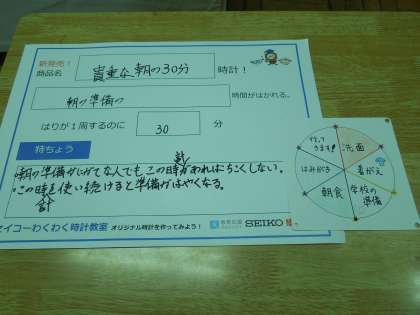 新発売！
商品名 貴重な朝の30分 時計！
朝の準備の 時間がはかれる。
はりが1周するのに 30 分
特ちょう
・朝の準備がにがてな人でもこの時計があればちこくしない。
・この時計を使い続けると準備がはやくなる。
セイコーわくわく時計教室 オリジナル時計を作ってみよう！ SEIKO
行ってきます！
洗面
着がえ
学校の準備
朝食
はみがき